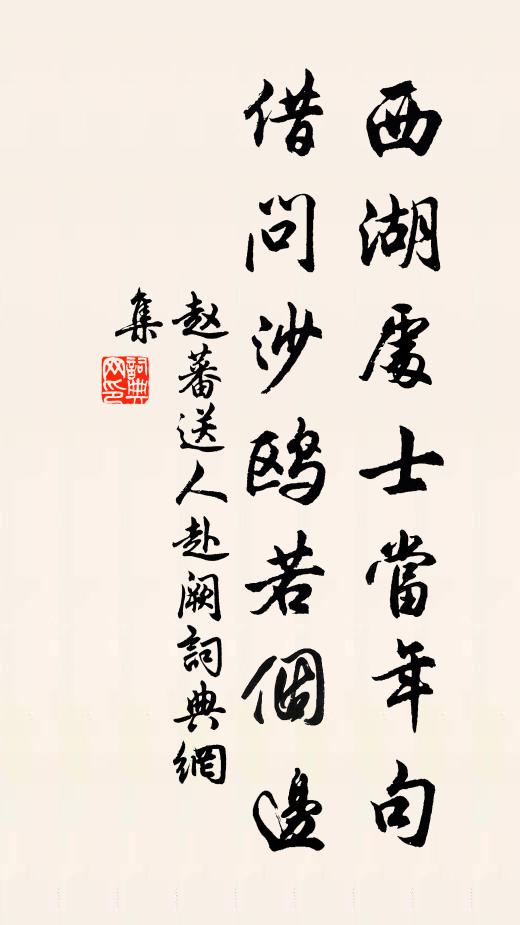 西湖處士當年句
借問沙鷗若個邊
赵蕃送人赴阙詞典網
集
詞典
网印